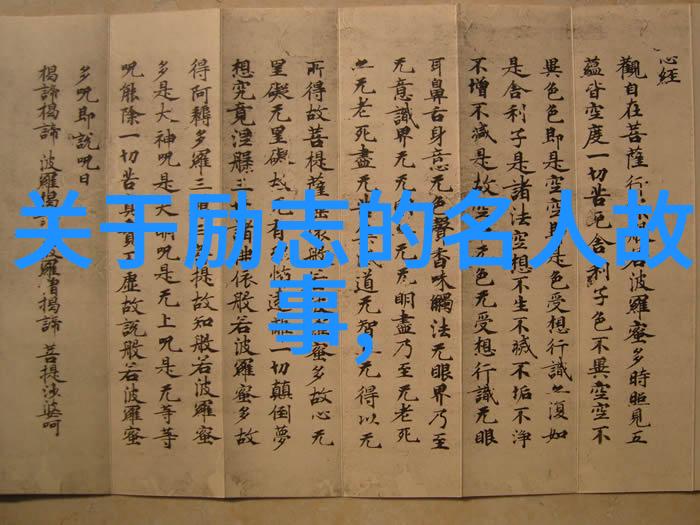 心經
觀自在菩薩行
若波羅蜜多時照見五
蘊皆空度一切苦厄舍利子色不異空空不
異色色即是空空即是色受想行識亦復如
是舍利子是諸法空想不生不滅不垢不淨
不增不減是故空
无色无受想行識无眼
耳鼻舌身意无色聲香味觸法无眼界乃至
无意識界无
无明盡乃至无老死
亦无老死盡无
道无智
无得以无
所得故菩提薩埵依般
蜜多故心无
罣礙无罣礙故无有
怖遠離一切顛倒夢
想究竟涅槃三世諸佛依般若波羅蜜多故
得阿耨多羅三
三菩提故知般若波羅蜜
多是大神呪是大明呪是无上呪是无等等
呪能除一切苦真實不虛故說般若波羅蜜
多呪即說呪曰
揭諦揭諦
波羅揭
波羅僧揭諦
菩提
关于励志的名人故
事,